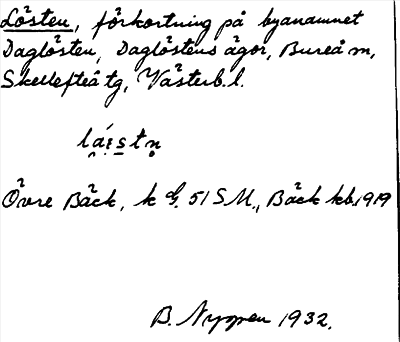 Lösten, förkortning på byanamnet
Daglösten, Daglöstens ägor, Bureå sn,
Skellefteå tg, Västerb. l.
láistn̥
Övre Bäck, k 51 SM., Bäck kb. 1919
B. Nyppen 1932.